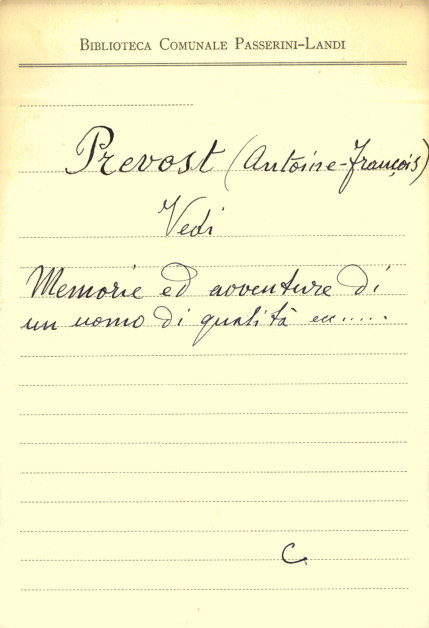 BIBLIOTECA COMUNALE PASSERINI-LANDI
Prevost (Antoine-François)
Vedi
Memorie ed avventure di
un uomo di qualità ecc.....
C.